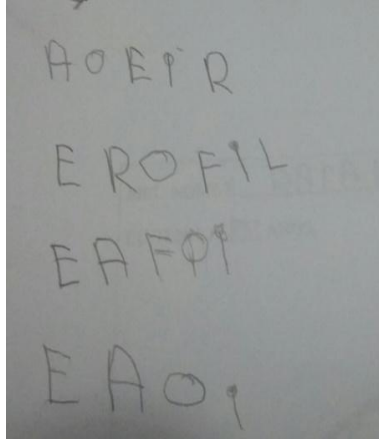 AOEIR
EROFIL
EAFOI
EAOI